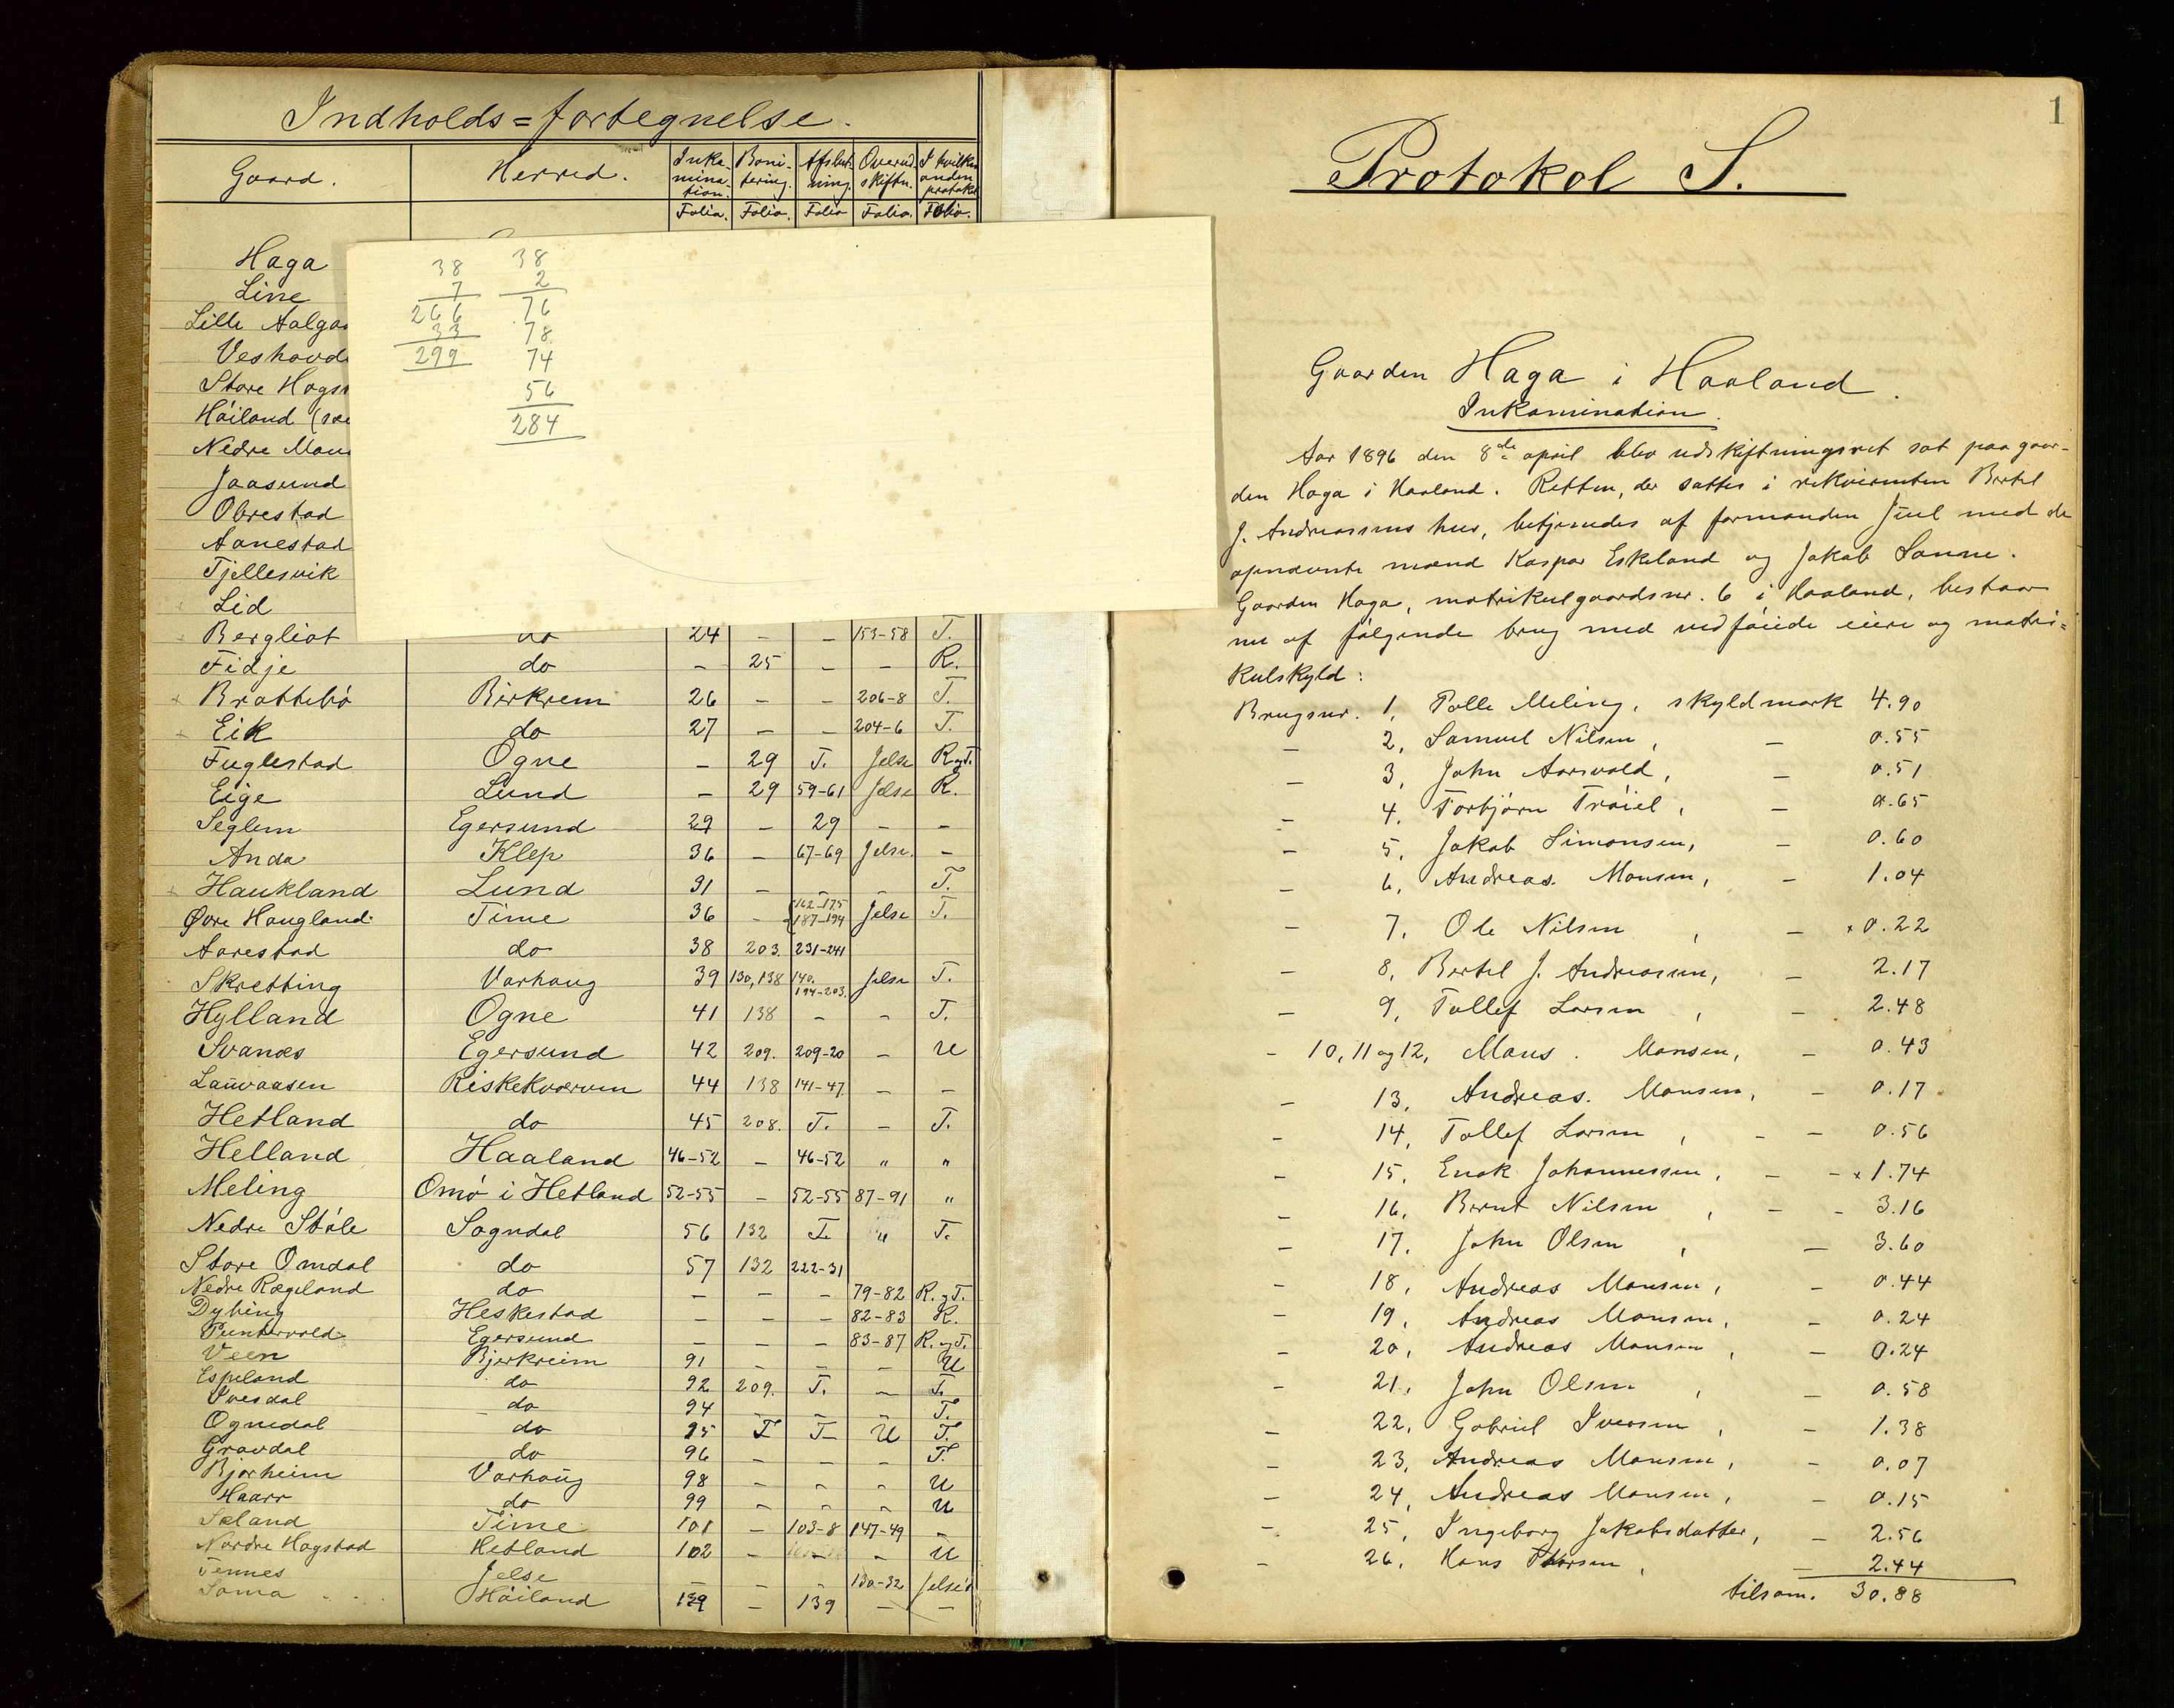 Indholds=fortegnelse.
Gaard. Herred. Inka-mina-tion. Boni-tering. Afslut-ning. Overud-skiftn. I hvilken anden protokol
Folio. Folio. Folio Folio. Folio.
Haga
Line
Lille Aalgaa
Veshovd
Store Hogs
Höiland
Nedre
Jaasund
Obrestad
Aanestad
Tjellesvik
Lid
38 38
7 2
266 76
33 78
299 74
56
284
Bergliot do 24 – – 153-58 T.
Fidje do – 25 – – R.
Brattebö Birkrem 26 – – 206-8 T.
Eik do 27 – – 204-6 T.
Fuglestad Ogne – 29 T. Jelse R og T.
Eige Lund – 29 59-61 Jelse R.
Seglem Egersund 29 – 29 – –
Anda Klep 36 – 67-69 Jelse. –
Haukland Lund 31 – – – T.
Øvre Haugland Time 36 – 162-175 187-194 Jelse T.
Aarestad do 38 203. 231-241
Skretting Varhaug 39 130, 138 140. 194-203. Jelse T.
Hylland Ogne 41 138 – – T.
Svanæs Egersund 42 209. 209-20 – U
Lauvaasen Riskekværven 44 138 141-47. – –
Hetland do 45 208. T. – T.
Helland Haaland 46-52 – 46-52 " "
Meling Omö i Hetland 52-55 – 52-55 87-91 "
Nedre Stöle Sogndal 56 132 T. " T.
Store Omdal do 57 132 222-31
Nedre Rægeland do – – – 79-82 R. og T.
Dybing Heskestad – – – 82-83 R.
Puntervold Egersund – – – 83-87 R. og T.
Veen Bjerkreim 91 – – – U
Espeland do 92 209. T. – T.
Ivesdal do 94 – – – T.
Ognedal do 95 T T U T.
Gravdal do 96 – – – T.
Bjorheim Varhaug 98 – – – U
Haarr do 99 – – – U
Sæland Time 101 – 103-8 147-49 –
Nordre Hogstad Hetland 102 – – – U
Tennes Jelse – – – 130-32 Jelse
Soma Höiland 139 – 139 – –
1
Protokol S.
Gaarden Haga i Haaland.
Inkamination.
Aar 1896 den 8de april blev udskiftningsret sat paa gaar-
den Haga i Haaland. Retten, der sattes i rekvirenten Bertel
J. Andreassens hus, betjenedes af formanden Juul med de
opnævnte mænd Kaspar Eskeland og Jakob Sømme.
Gaarden Haga, matrikulgaardsnr. 6 i Haaland, bestaar
nu af følgende brug med vedføiede eiere og matri=
kulskyld:
Brugsnr. 1, Tolle Meling, skyldmark 4.90
– 2, Samuel Nilsen, – 0.55
– 3, John Aarsvold, – 0.51
– 4, Torbjörn Tröiel, – 0.65
– 5, Jakob Simonsen, – 0.60
– 6, Andreas Monsen, – 1.04
– 7, Ole Nilsen, – × 0.22
– 8, Bertel J. Andreassen, – 2.17
– 9, Tollef Larsen, – 2.48
– 10, 11 og 12, Mons Monsen, – 0.43
– 13, Andreas Monsen, – 0.17
– 14, Tollef Larsen, – – 0.56
– 15, Enok Johannessen, – – × 1.74
– 16, Bernt Nilsen, – – 3.16
– 17. John Olsen, – 3.60
– 18, Andreas Monsen, – 0.44
– 19, Andreas Monsen, – 0.24
– 20, Andreas Monsen, – 0.24
– 21, John Olsen, – 0.58
– 22, Gabriel Iversen, – 1.38
– 23, Andreas Monsen, – 0.07
– 24, Andreas Monsen, – 0.15
– 25, Ingeborg Jakobsdatter, – 2.56
– 26, Hans, – 2.44
tilsam. 30.88